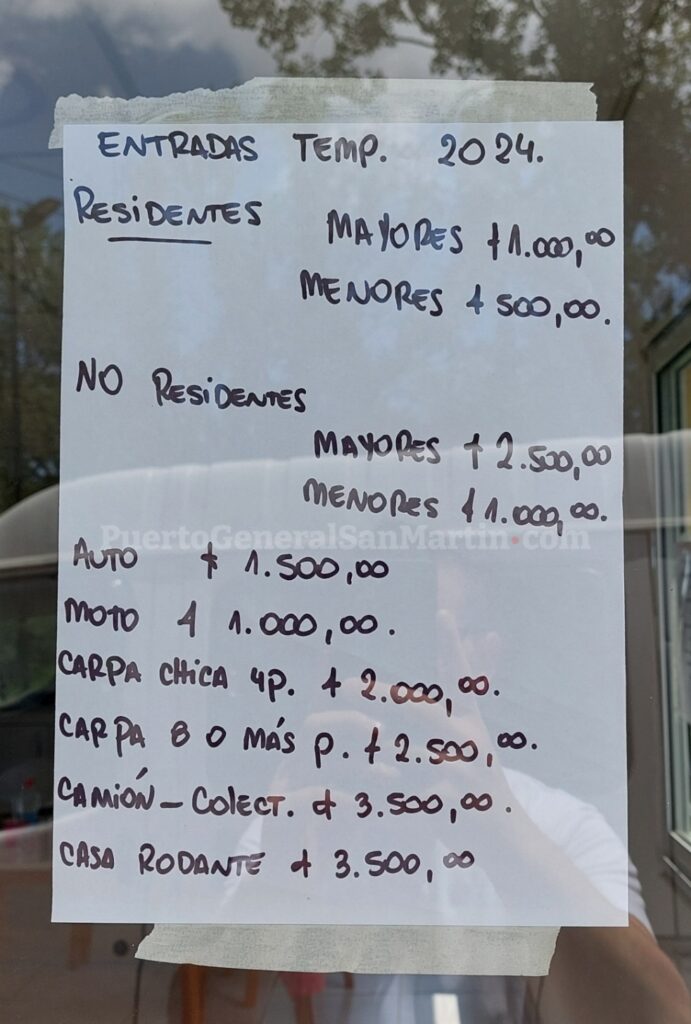 ENTRADAS TEMP. 2024.
RESIDENTES
MAYORES $1.000,00
MENORES $ 500,00.
NO RESIDENTES
MAYORES $ 2.500,00
MENORES $1.000,00.
PuertoGeneralSanMartin.com
AUTO $ 1.500,00
MOTO $ 1.000,00.
CARPA CHICA 4P. $ 2.000,00.
CARPA 8 O MÁS P. $ 2.500,00.
CAMIÓN - COLECT. $ 3.500,00.
CASA RODANTE $ 3.500,00